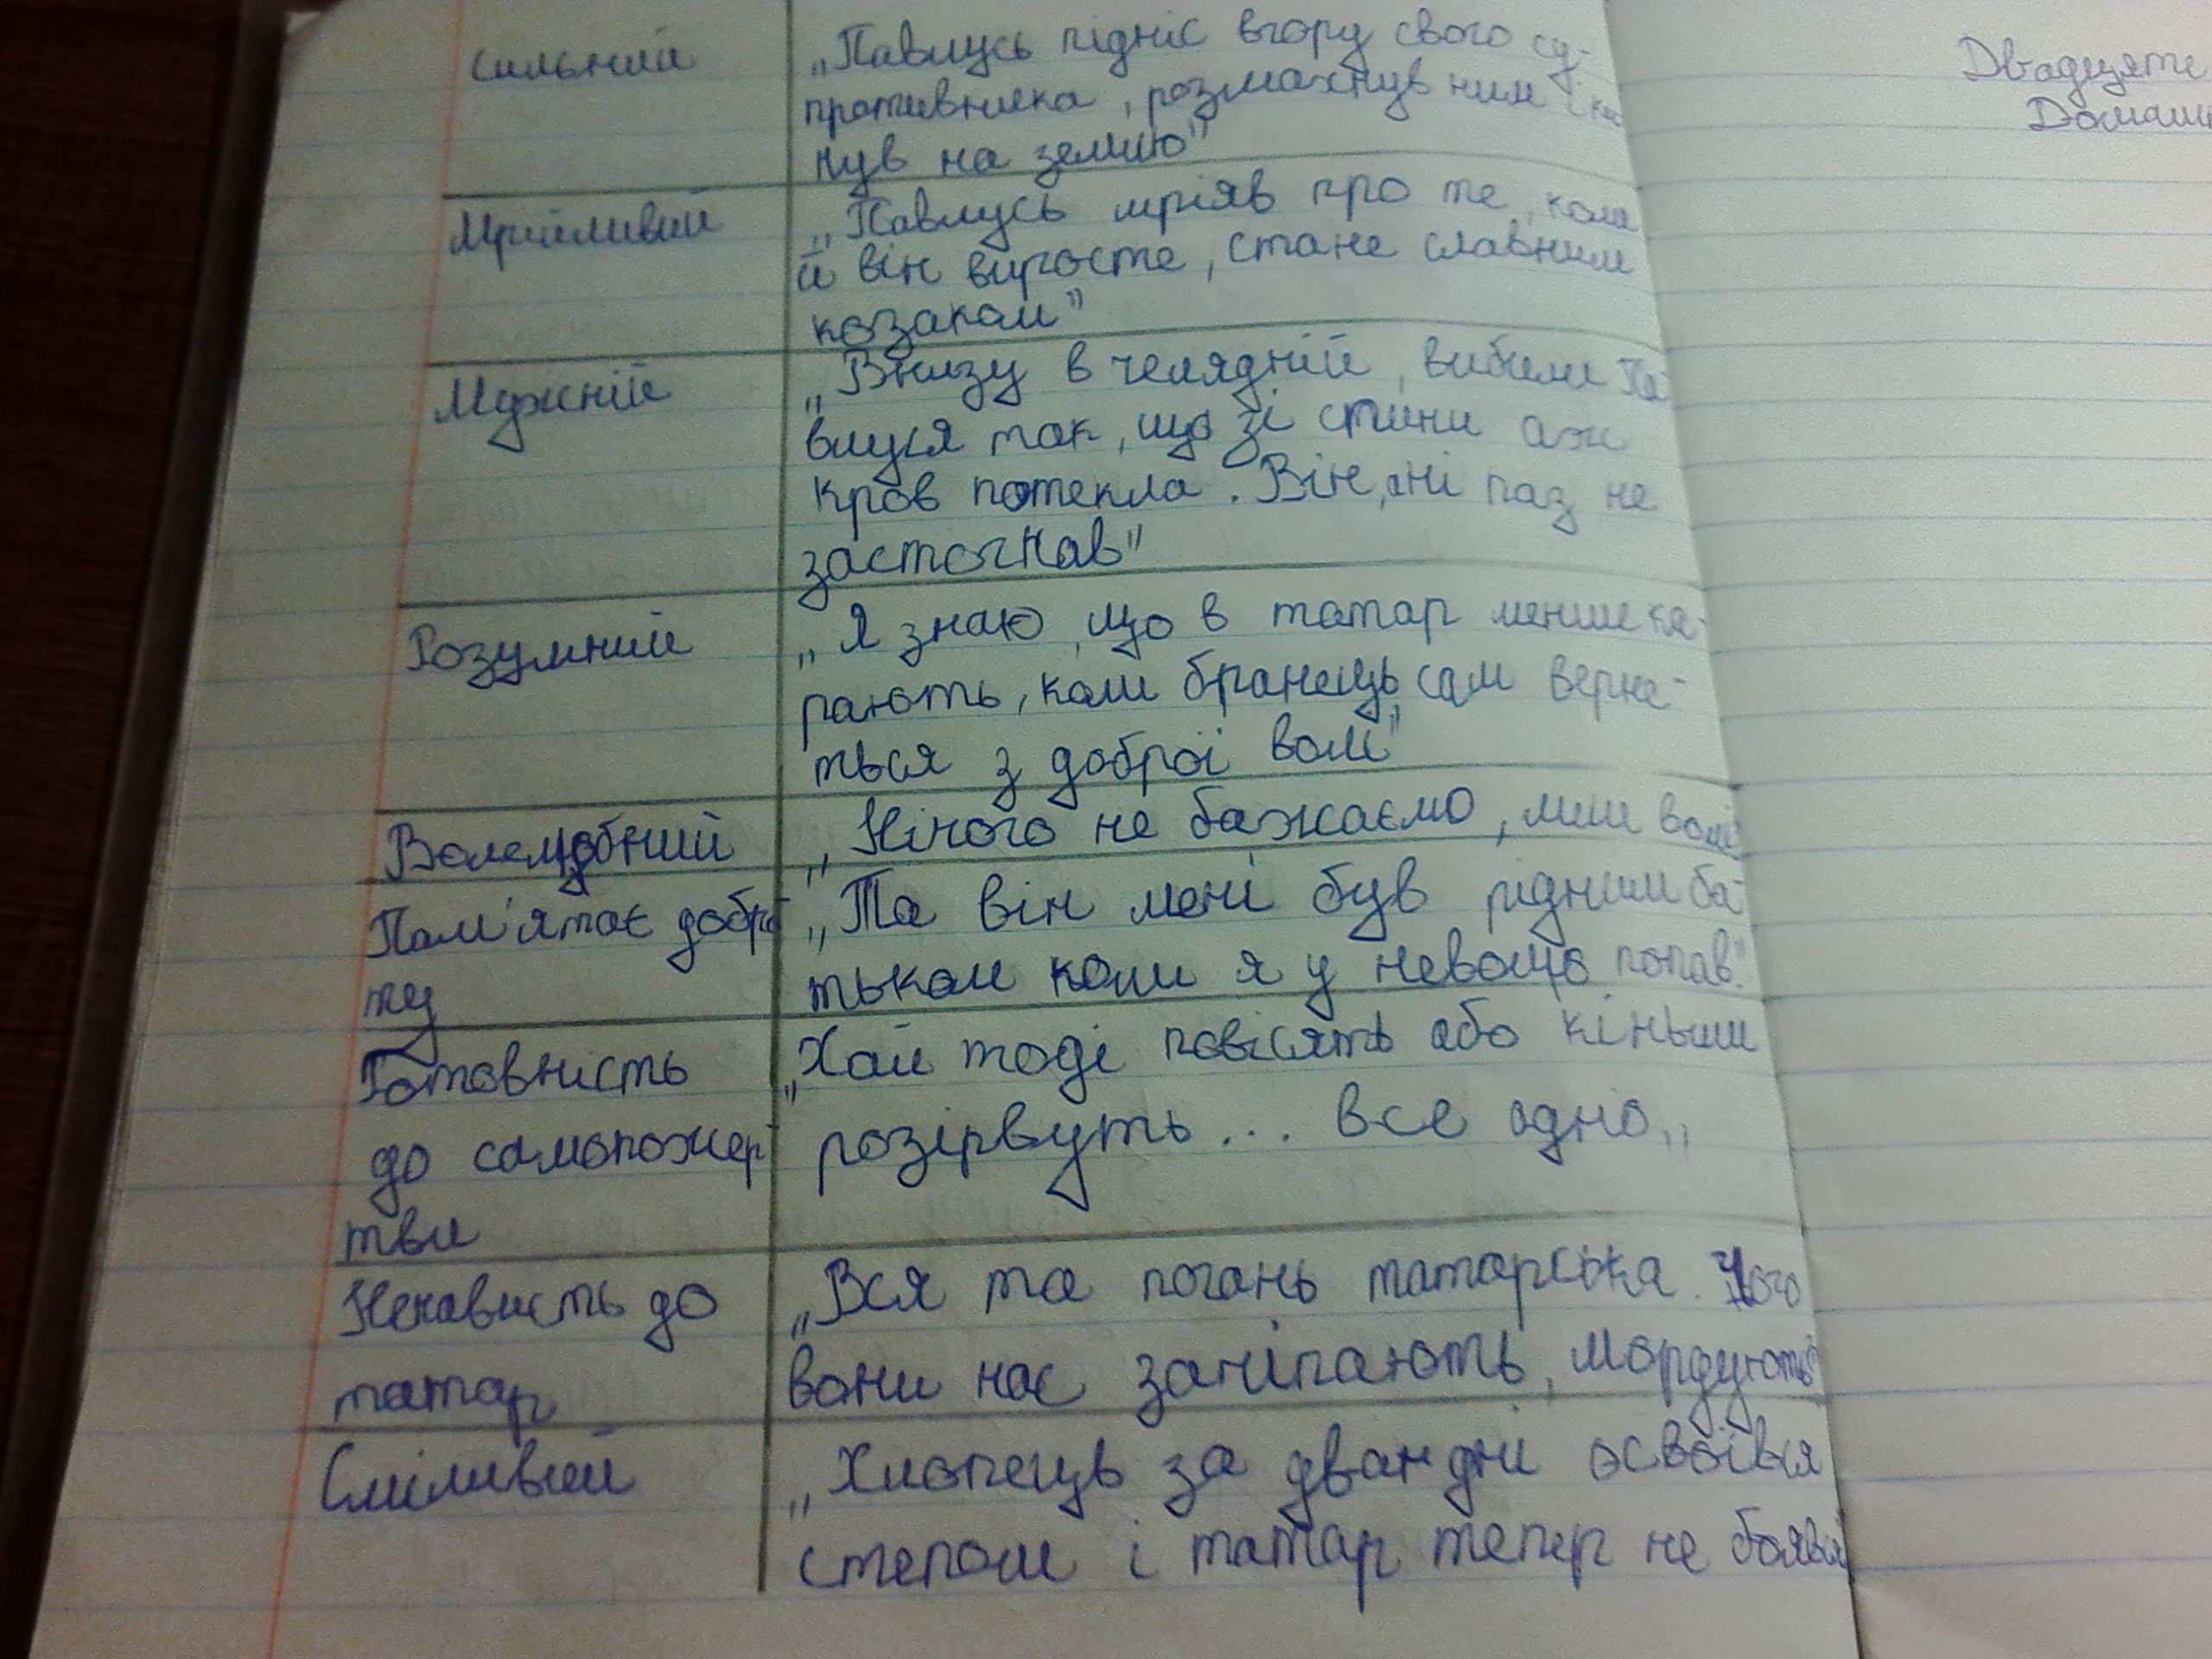 сильний
„Павлусь підніс вгору свого су-
противника, розмахнув ним і ки
нув на землю"
Мрійливий
„Павлусь мріяв про те, коли
й він виросте, стане славним
козаком"
Мужній
„Внизу в челядній, вибили Па-
влуся так, що зі спини аж
кров потекла. Він, ані раз не
застогнав"
Розумний
„Я знаю, що в татар менше ка-
рають, коли бранець сам верне-
ться з доброї волі"
Волелюбний
„Нічого не бажаємо, лиш волі
Пам'ятає добро-
ту
„Та він мені був рідним ба-
тьком коли я у неволю попав."
Готовність
до самопожер-
тви
„Хай тоді повісять або кіньми
розірвуть... все одно„
Ненависть до
татар
„Вся та погань татарська. Чого
вони нас зачіпають, мордують"
Сміливий
„Хлопець за два дні освоївся
степом і татар тепер не боявся
Двадцяте
Домашн